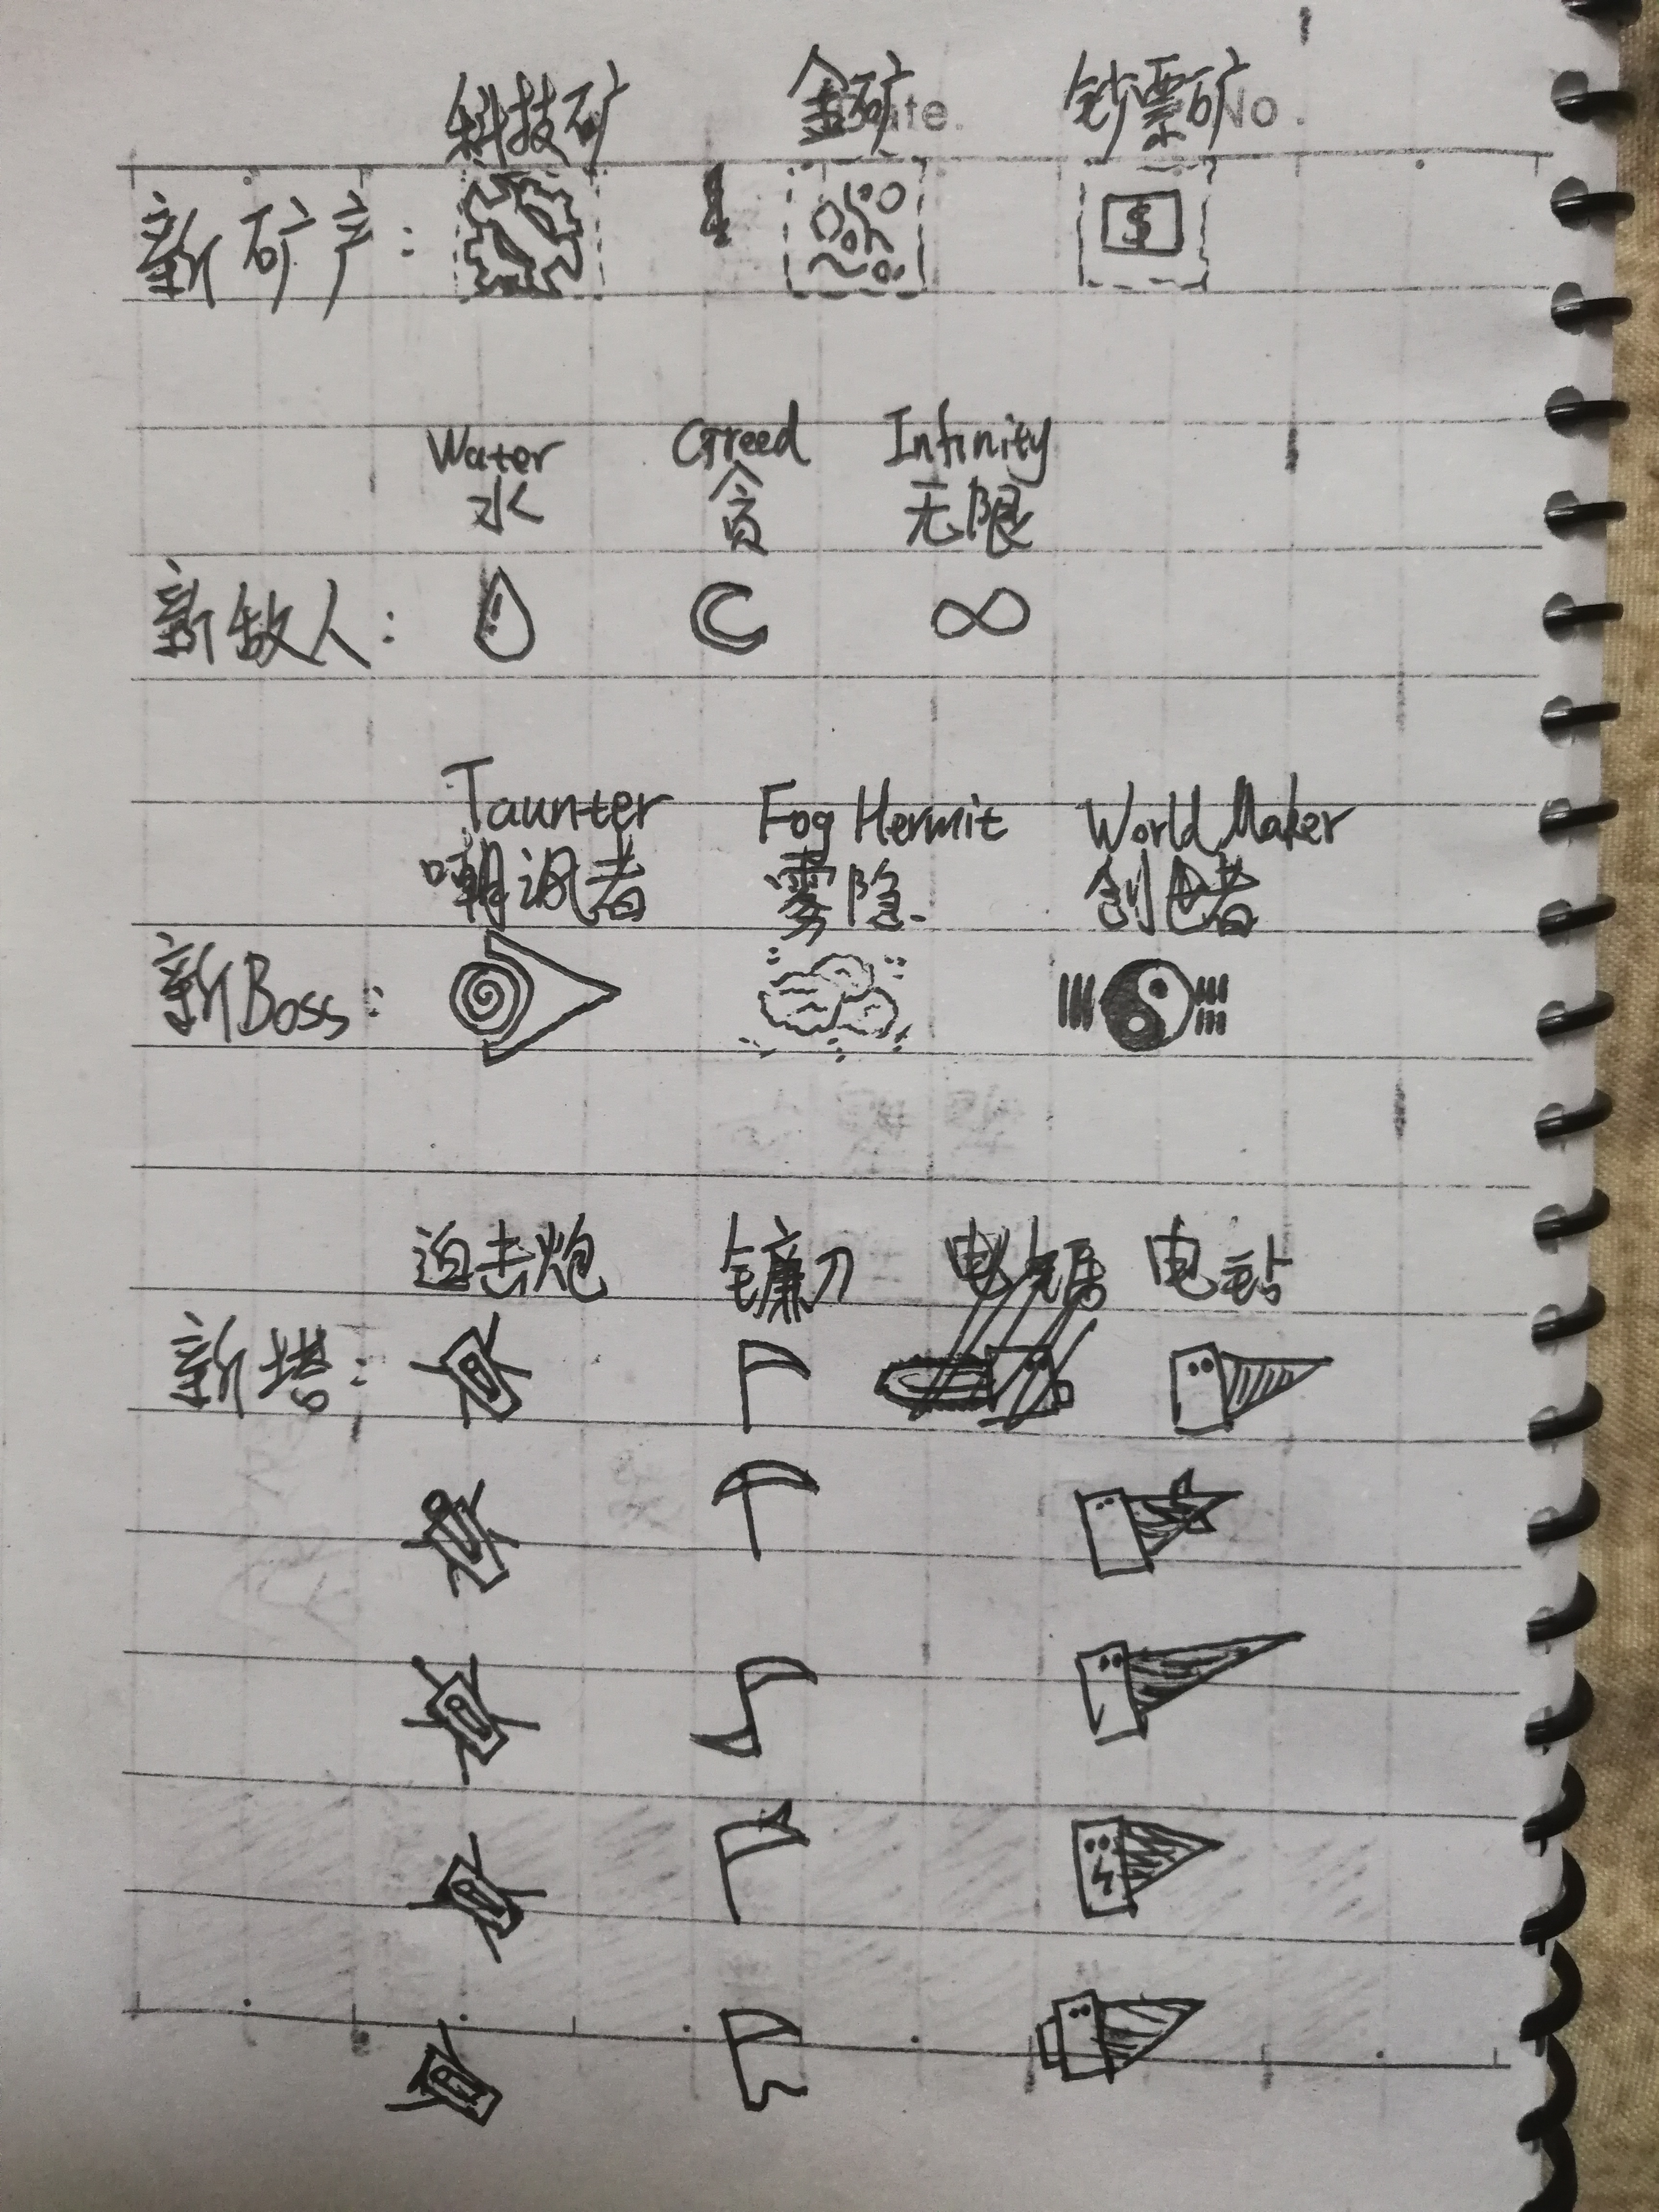 科技矿 金矿 钞票矿
Date. No.
新矿产: $
Water Greed Infinity
水 贪 无限
新敌人: ∞
Taunter Fog Hermit World Maker
嘲讽者 雾隐 创世者
新Boss:
迫击炮 镰刀 电站
新塔: